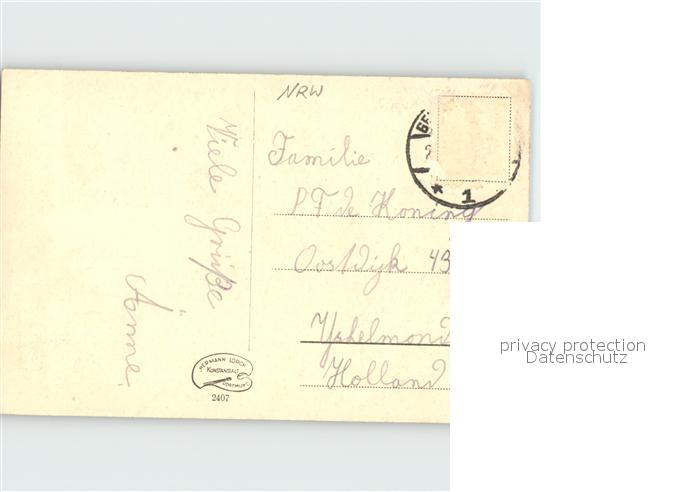 NRW
Viele Grüße
Änne.
Familie
P T de Koning
Oostdijk 43
Yshelmond
Holland
HERMANN LORCH
KUNSTANSTALT
DORTMUND
2407
* 1
privacy protection
Datenschutz